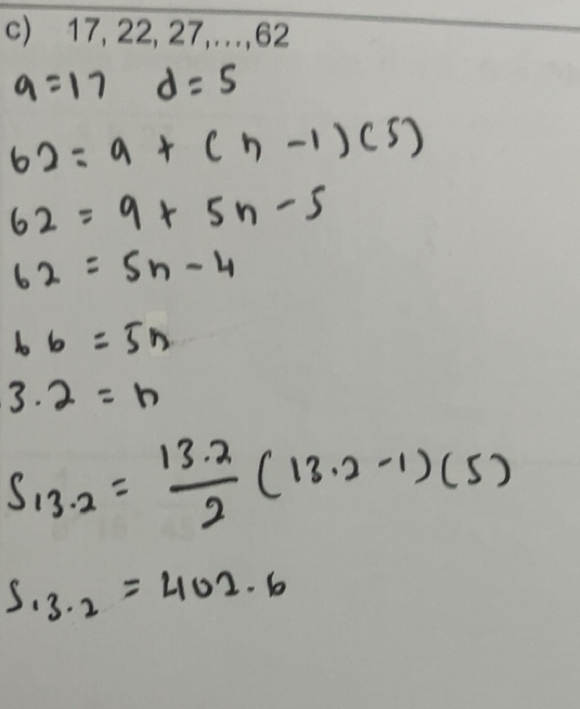 c) 17, 22, 27,..., 62
a=17 d=5
62 = a + (n-1)(5)
62 = 9+ 5n-5
62 = 5n-4
66 = 5n
3.2 = n
S13.2 = 13.2/2 (13.2-1)(5)
S13.2 = 402.6